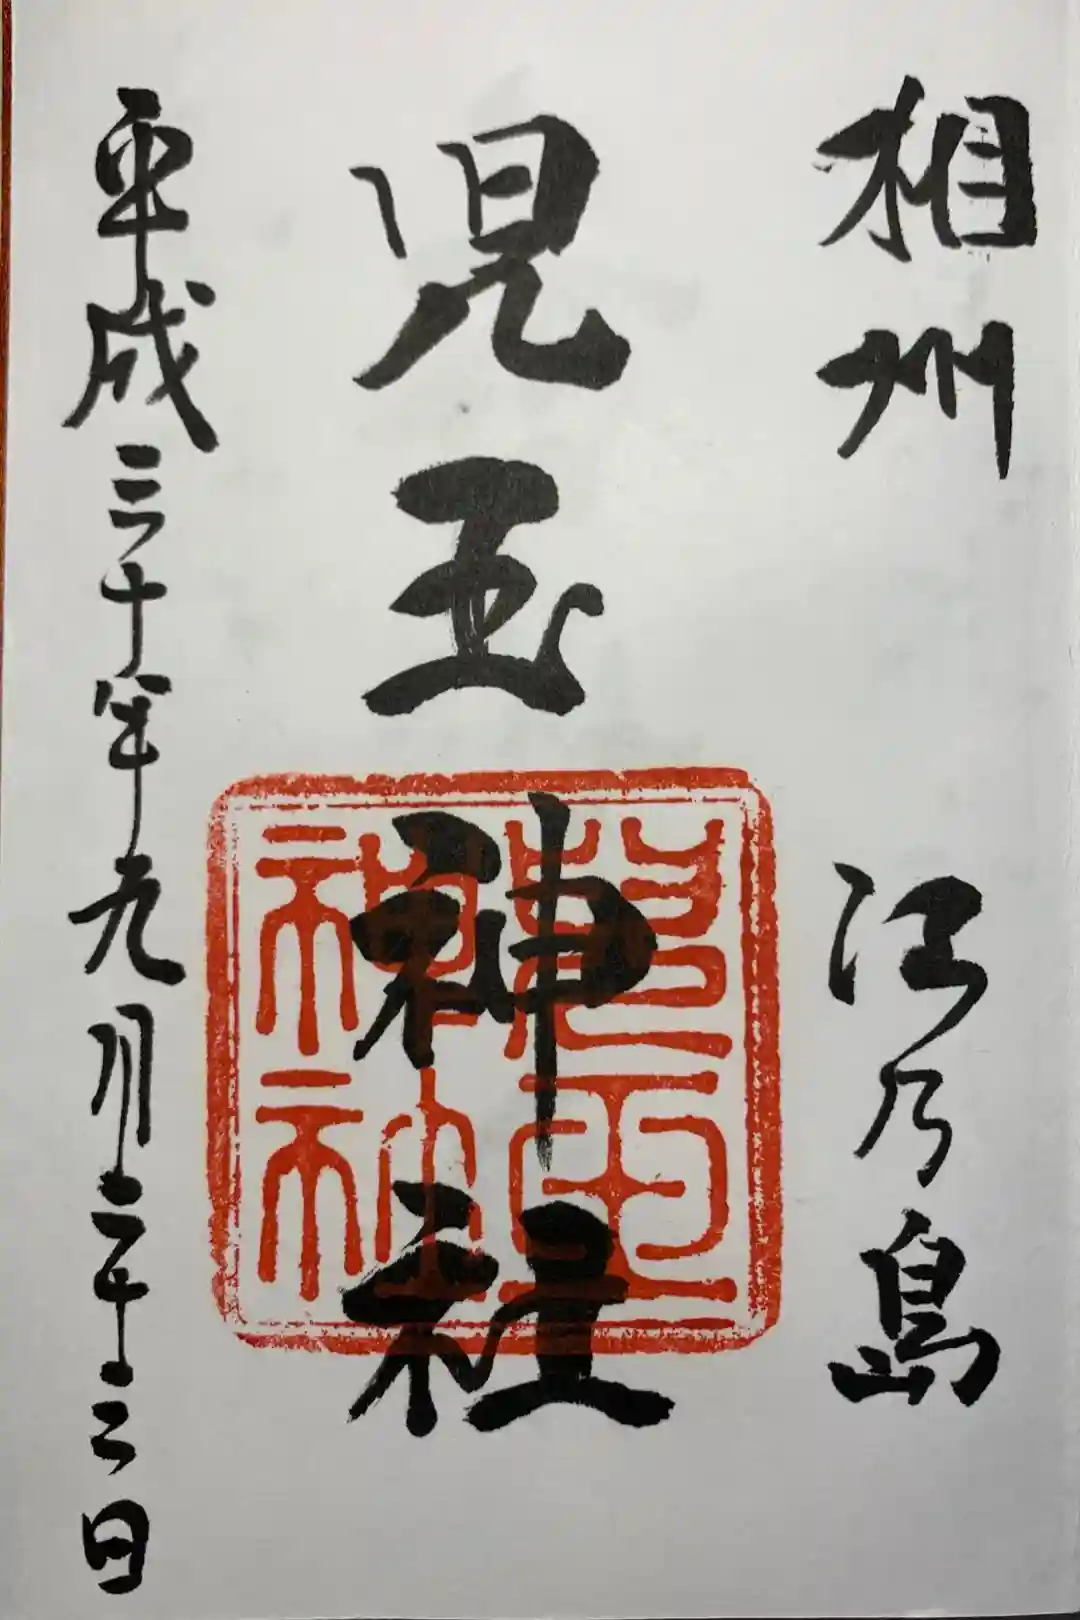 相州 江乃島
児玉神社
平成三十年九月二十三日
兒玉
神社